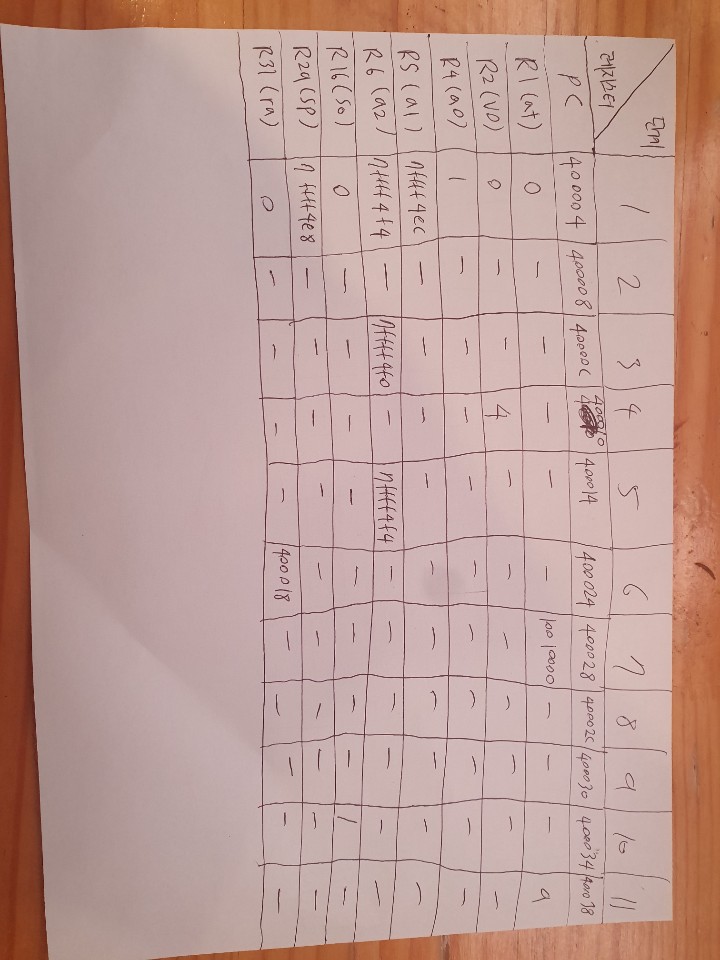 단계
레지스터 1 2 3 4 5 6 7 8 9 10 11
PC 400004 400008 40000c 400010 40014 400024 400028 40002c 400030 400034 40038
R1(at) 0 - - - - - 10010000 - - - 9
R2(V0) 0 - - 4 - - - - - - -
R4(a0) 1 - - - - - - - - - -
R5(a1) 7ffff4ec - - - - - - - - - -
R6(a2) 7ffff4f4 - 7ffff4f0 - 7ffff4f4 - - - - - -
R16(s0) 0 - - - - - - - - - -
R29(sp) 7ffff4e8 - - - - - - - - - -
R31(ra) 0 - - - - 400018 - - - - -